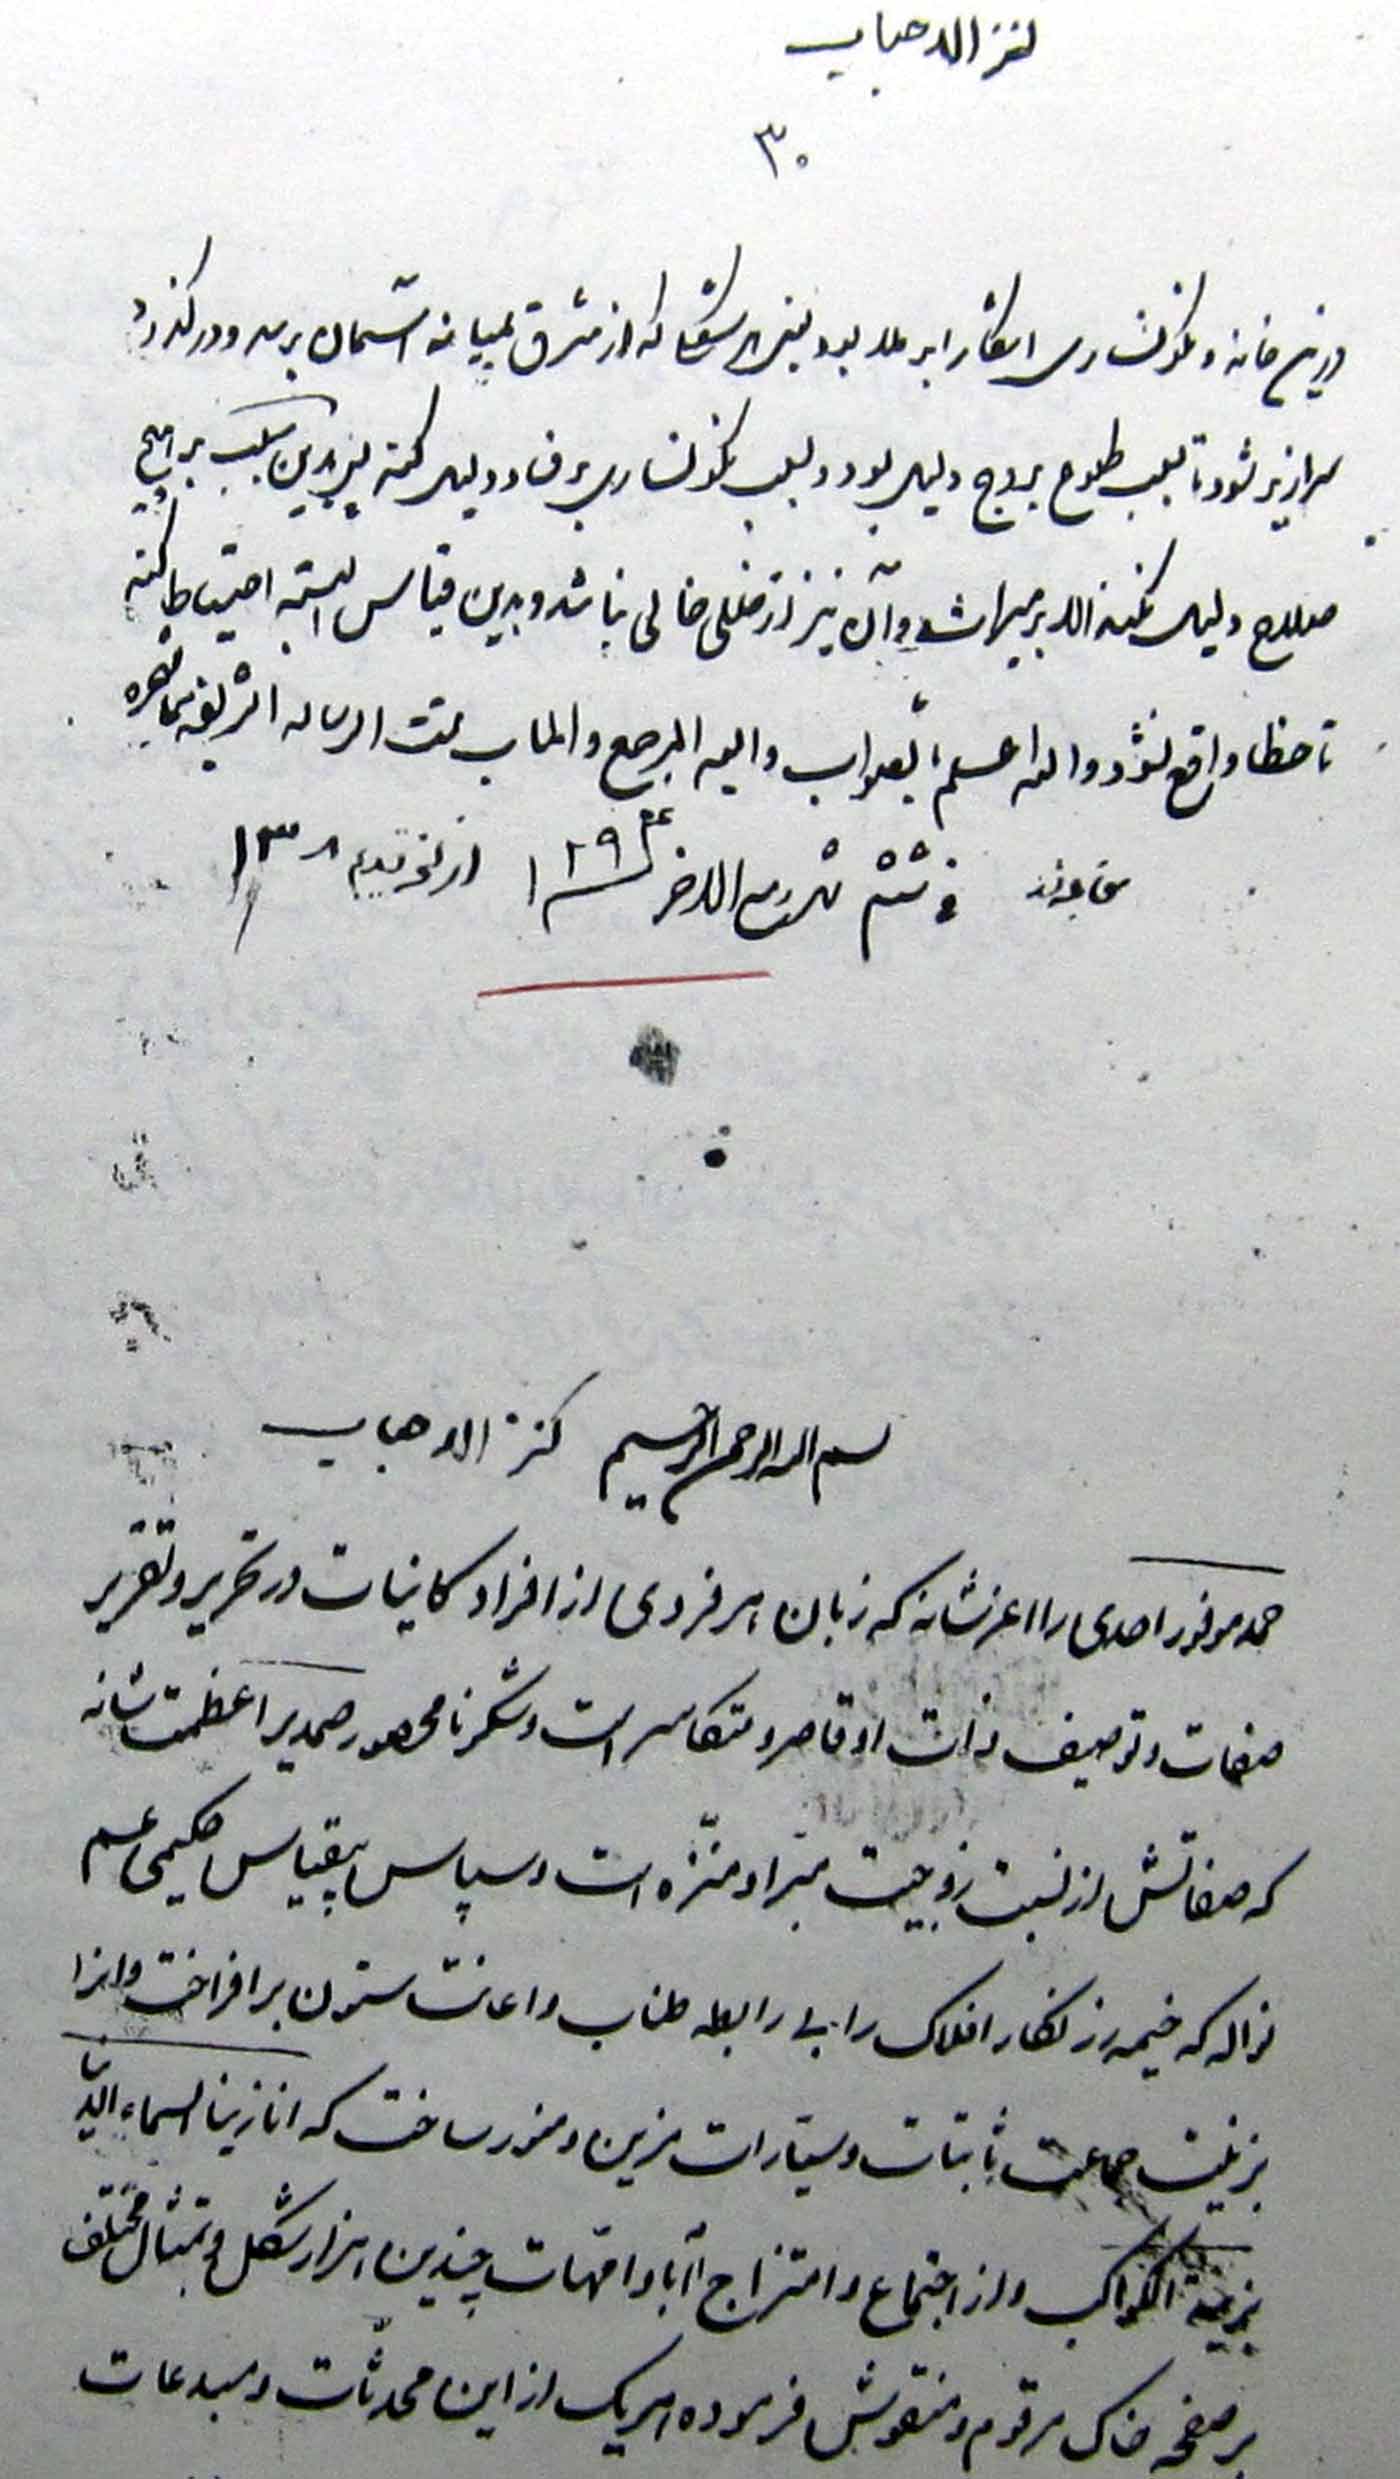 کنز الاحباب
۳۰
در پنج خانه و نکونساری اشکال را بر بلد بود یعنی هر شکل که از مشرق بمیانه آسمان برسد و درگذرد
سرازیر شود تا بسبب طلوع بروج دلیل بود و بسبب نکونساری بر فساد دلیل کند پس بدین سبب بر هیچ
صلاح دلیل نکند الا بر میراث و آن نیز از خللی خالی نباشد و بدین قیاس البته احتیاط کند
تا خطا واقع نشود والله اعلم بالصواب والیه المرجع والماب تمت الرساله الشریفه
فی ششم شهر ربیع الاخر سنه ۱۲۹ از نسخه قدیم ۱۳۰۸
بسم الله الرحمن الرحیم کنز الاحباب
حمد موفور احدی را اعز شانه که زبان هر فردی از افراد کاینات در تحریر و تقریر
صفات و توصیف ذات او قاصر و متکاسر است و شکر نامحصور صمدیرا عظمت شانه
که صفاتش از نسبت زوجیت مبرا و منزّه است و سپاس بیقیاس حکیمی عم
نواله که خیمه زرنکار افلاک را بی رابطه طناب و اعانت ستون برافراخت و انرا
بزینت جماعت ثابتات و سیّارات مزین و منور ساخت که انا زینا السماء الدنیا
بزینة الکواکب و از اجتماع و امتزاج آبا و امّهات چندین هزار شکل و تمثال مختلف
بر صفحه خاک مرقوم و منقوش فرموده هر یک از این محدثات و مبدعات